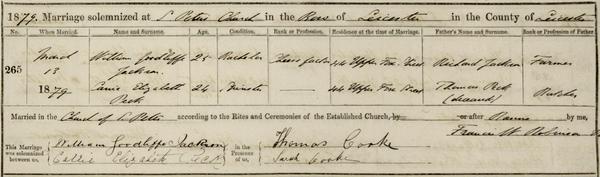 1879. Marriage solemnized at St Peters Church in the Boro of Leicester in the County of Leicester
No. When Married. Name and Surname. Age. Condition. Rank or Profession. Residence at the time of Marriage. Father's Name and Surname. Rank or Profession of Father
265 March 13 1879
William Goodliffe Jackson 25 Bachelor 44 Upper Fox Street Richard Jackson Farmer
Elizabeth Peck 24 Spinster — 44 Upper Fox Street Thomas Peck (deceased) Butcher
Married in the Church of St Peter according to the Rites and Ceremonies of the Established Church, by or after Banns by me,
Francis W. Robinson
This Marriage was solemnized between us, William Goodliffe Jackson Elizabeth Peck in the Presence of us, Thomas Cooke Sarah Cooke